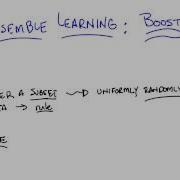 SEMBLE LEARNING : BOOST
ER A SUBSET → UNIFORMLY RANDOMLY
A → rule
E